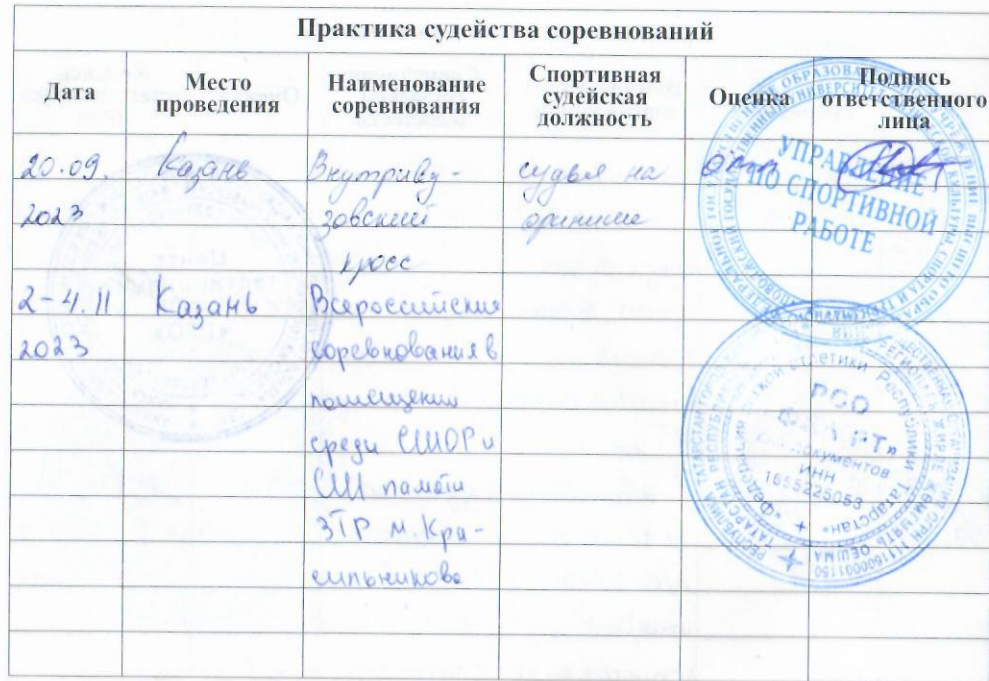 Практика судейства соревнований
Дата
Место
проведения
Наименование
соревнования
Спортивная
судейская
должность
Оценка
Подпись
ответственного
лица
20.09.
2023
Казань
Внутриву-
зовский
кросс
судья на
финише
отл
2-4.11
2023
Казань
Всероссийские
соревнования в
помещении
среди СШОР и
СШ памяти
ЗТР М.Кра-
сильникова
УПРАВЛЕНИЕ
ПО СПОРТИВНОЙ
РАБОТЕ
РОО
«ФЛА РТ»
документов
ИНН
1655225053
«Федерация легкой атлетики Республики Татарстан»
Центр